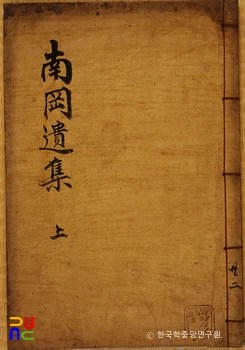 南岡遺集
上
共二
© 한국학중앙연구원